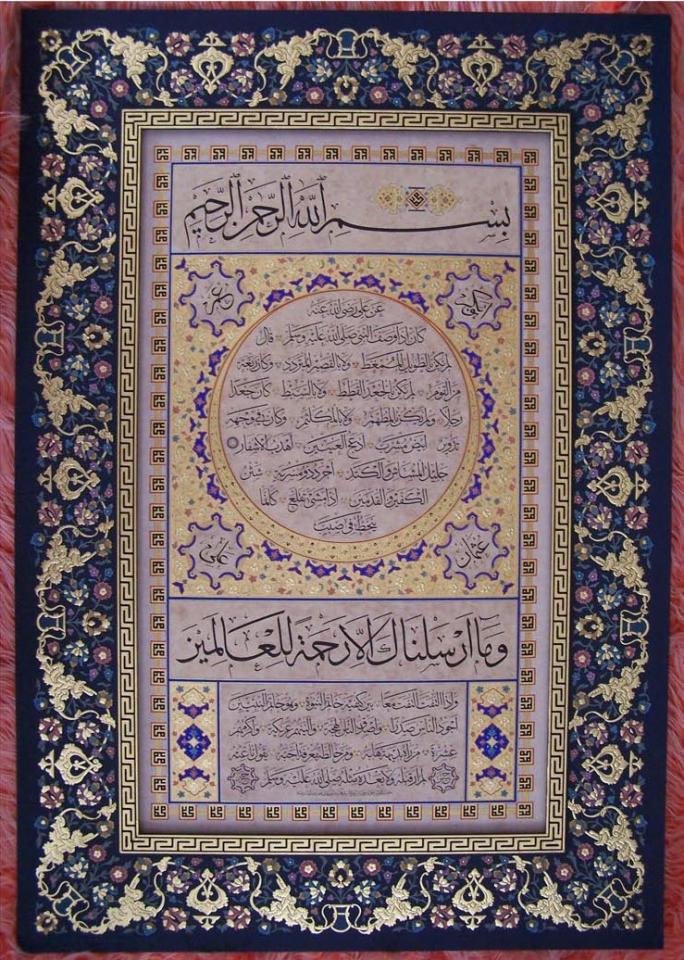 بِسْمِ اللّٰهِ الرَّحْمٰنِ الرَّحِيمِ
ابوبكر
عمر
عن علي رضي الله عنه
كان اذا وصف النبي صلى الله عليه وسلم قال
لم يكن بالطويل الممغط ولا بالقصير المتردد وكان ربعة
من القوم لم يكن بالجعد القطط ولا بالسبط كان جعدا
رجلا ولم يكن بالمطهم ولا بالمكلثم وكان في وجهه
تدوير ابيض مشرب ادعج العينين اهدب الاشفار
جليل المشاش والكتد اجرد ذو مسربة شثن
الكفين والقدمين اذا مشى تقلع كانما
ينحط في صبب
عثمان
علي
وَمَا اَرْسَلْنَاكَ اِلَّا رَحْمَةً لِلْعَالَمِينَ
واذا التفت التفت معا بين كتفيه خاتم النبوة وهو خاتم النبيين
اجود الناس صدرا واصدق الناس لهجة والينهم عريكة واكرمهم
عشرة من رآه بديهة هابه ومن خالطه معرفة احبه يقول ناعته
لم ار قبله ولا بعده مثله صلى الله عليه وسلم